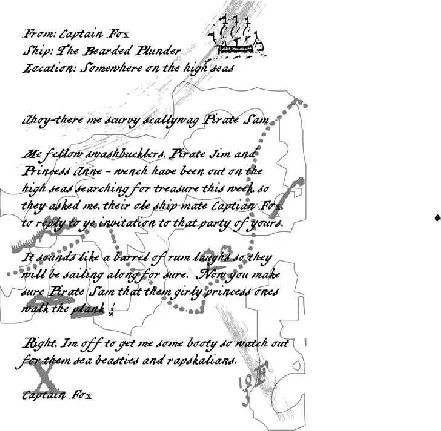 From: Captain Fox
Ship: The Bearded Plunder
Location: Somewhere on the high seas
Ahoy-there me scurvy scallywag Pirate Sam
Me fellow swashbucklers, Pirate Jim and
Princess Anne - wench have been out on the
high seas searching for treasure this week so
they asked me, their ole ship mate Captian Fox
to reply to ye invitation to that party of yours.
It sounds like a barrel of rum laughs so they
will be sailing along for sure. Now you make
sure Pirate Sam that them girly princess ones
walk the plank !
Right, Im off to get me some booty so watch out
for them sea beasties and rapskalians.
Captain Fox